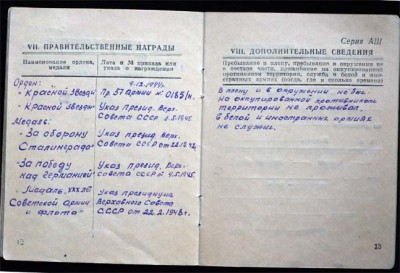 VII. ПРАВИТЕЛЬСТВЕННЫЕ НАГРАДЫ
Наименование ордена, медали
Дата и № приказа или указа о награждении
Орден:
9.12.1944г.
"Красной Звезды"
Пр 57 Армии № 0185/н.
"Красной Звезды"
Указ презид. Верх.
Совета СССР 1945
Медаль:
"За оборону
Указ презид. Верх.
Сталинграда"
Совета СССР от 22.12.42
"За победу
Указ презид. Верх.
над Германией"
совета СССР 9.5.1945
"Медаль, XXX лет
Указ президиума
Советской армии
Верховного Совета
и флота"
СССР от 22.2.1948г.
12
Серия АШ
VIII. ДОПОЛНИТЕЛЬНЫЕ СВЕДЕНИЯ
Пребывание в плену, пребывание в окружении
в составе части, проживание на оккупированной
противником территории, служба в белой и иностранных
армиях (когда, где и сколько времени)
В плену и в окружении не был
на оккупированной противником
территории не проживал,
в белой и иностранных армиях
не служил.
13